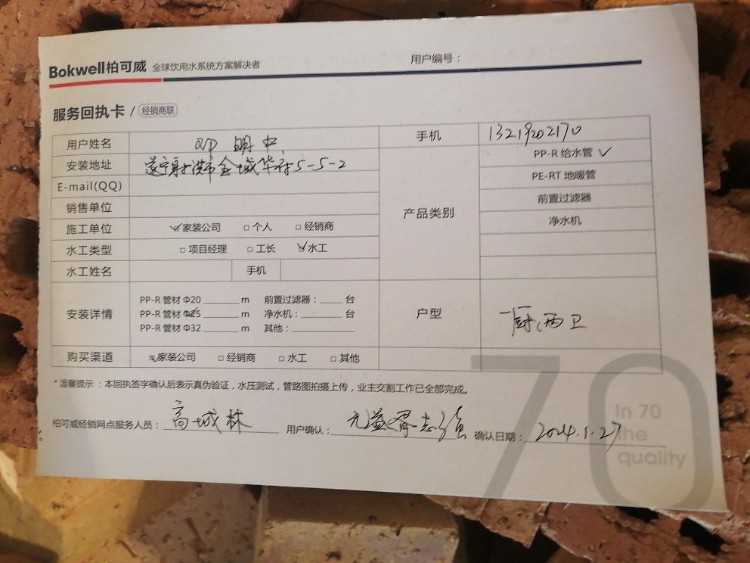 Bokwell柏可威 全球饮用水系统方案解决者 用户编号：
服务回执卡 / 经销商联
用户姓名 明中 手机 13219202170
安装地址 遂宁射洪市金城华府5-5-2 产品类别 PP-R 给水管 ✓
E-mail(QQ) PE-RT 地暖管
销售单位 前置过滤器
施工单位 ☑家装公司 □个人 □经销商 净水机
水工类型 □项目经理 □工长 ☑水工
水工姓名 手机
安装详情 户型 一厨、两卫
PP-R 管材 Φ20 ______ m 前置过滤器：____ 台
PP-R 管材 Φ25 ______ m 净水机：______ 台
PP-R 管材 Φ32 ______ m 其他：______
购买渠道 ☑家装公司 □经销商 □水工 □其他
*温馨提示：本回执签字确认后表示真伪验证，水压测试，管路图拍摄上传，业主交割工作已全部完成。
柏可威经销网点服务人员：高城林 用户确认： 元益 志强 确认日期：2024.1.27
70
In 70
the
quality